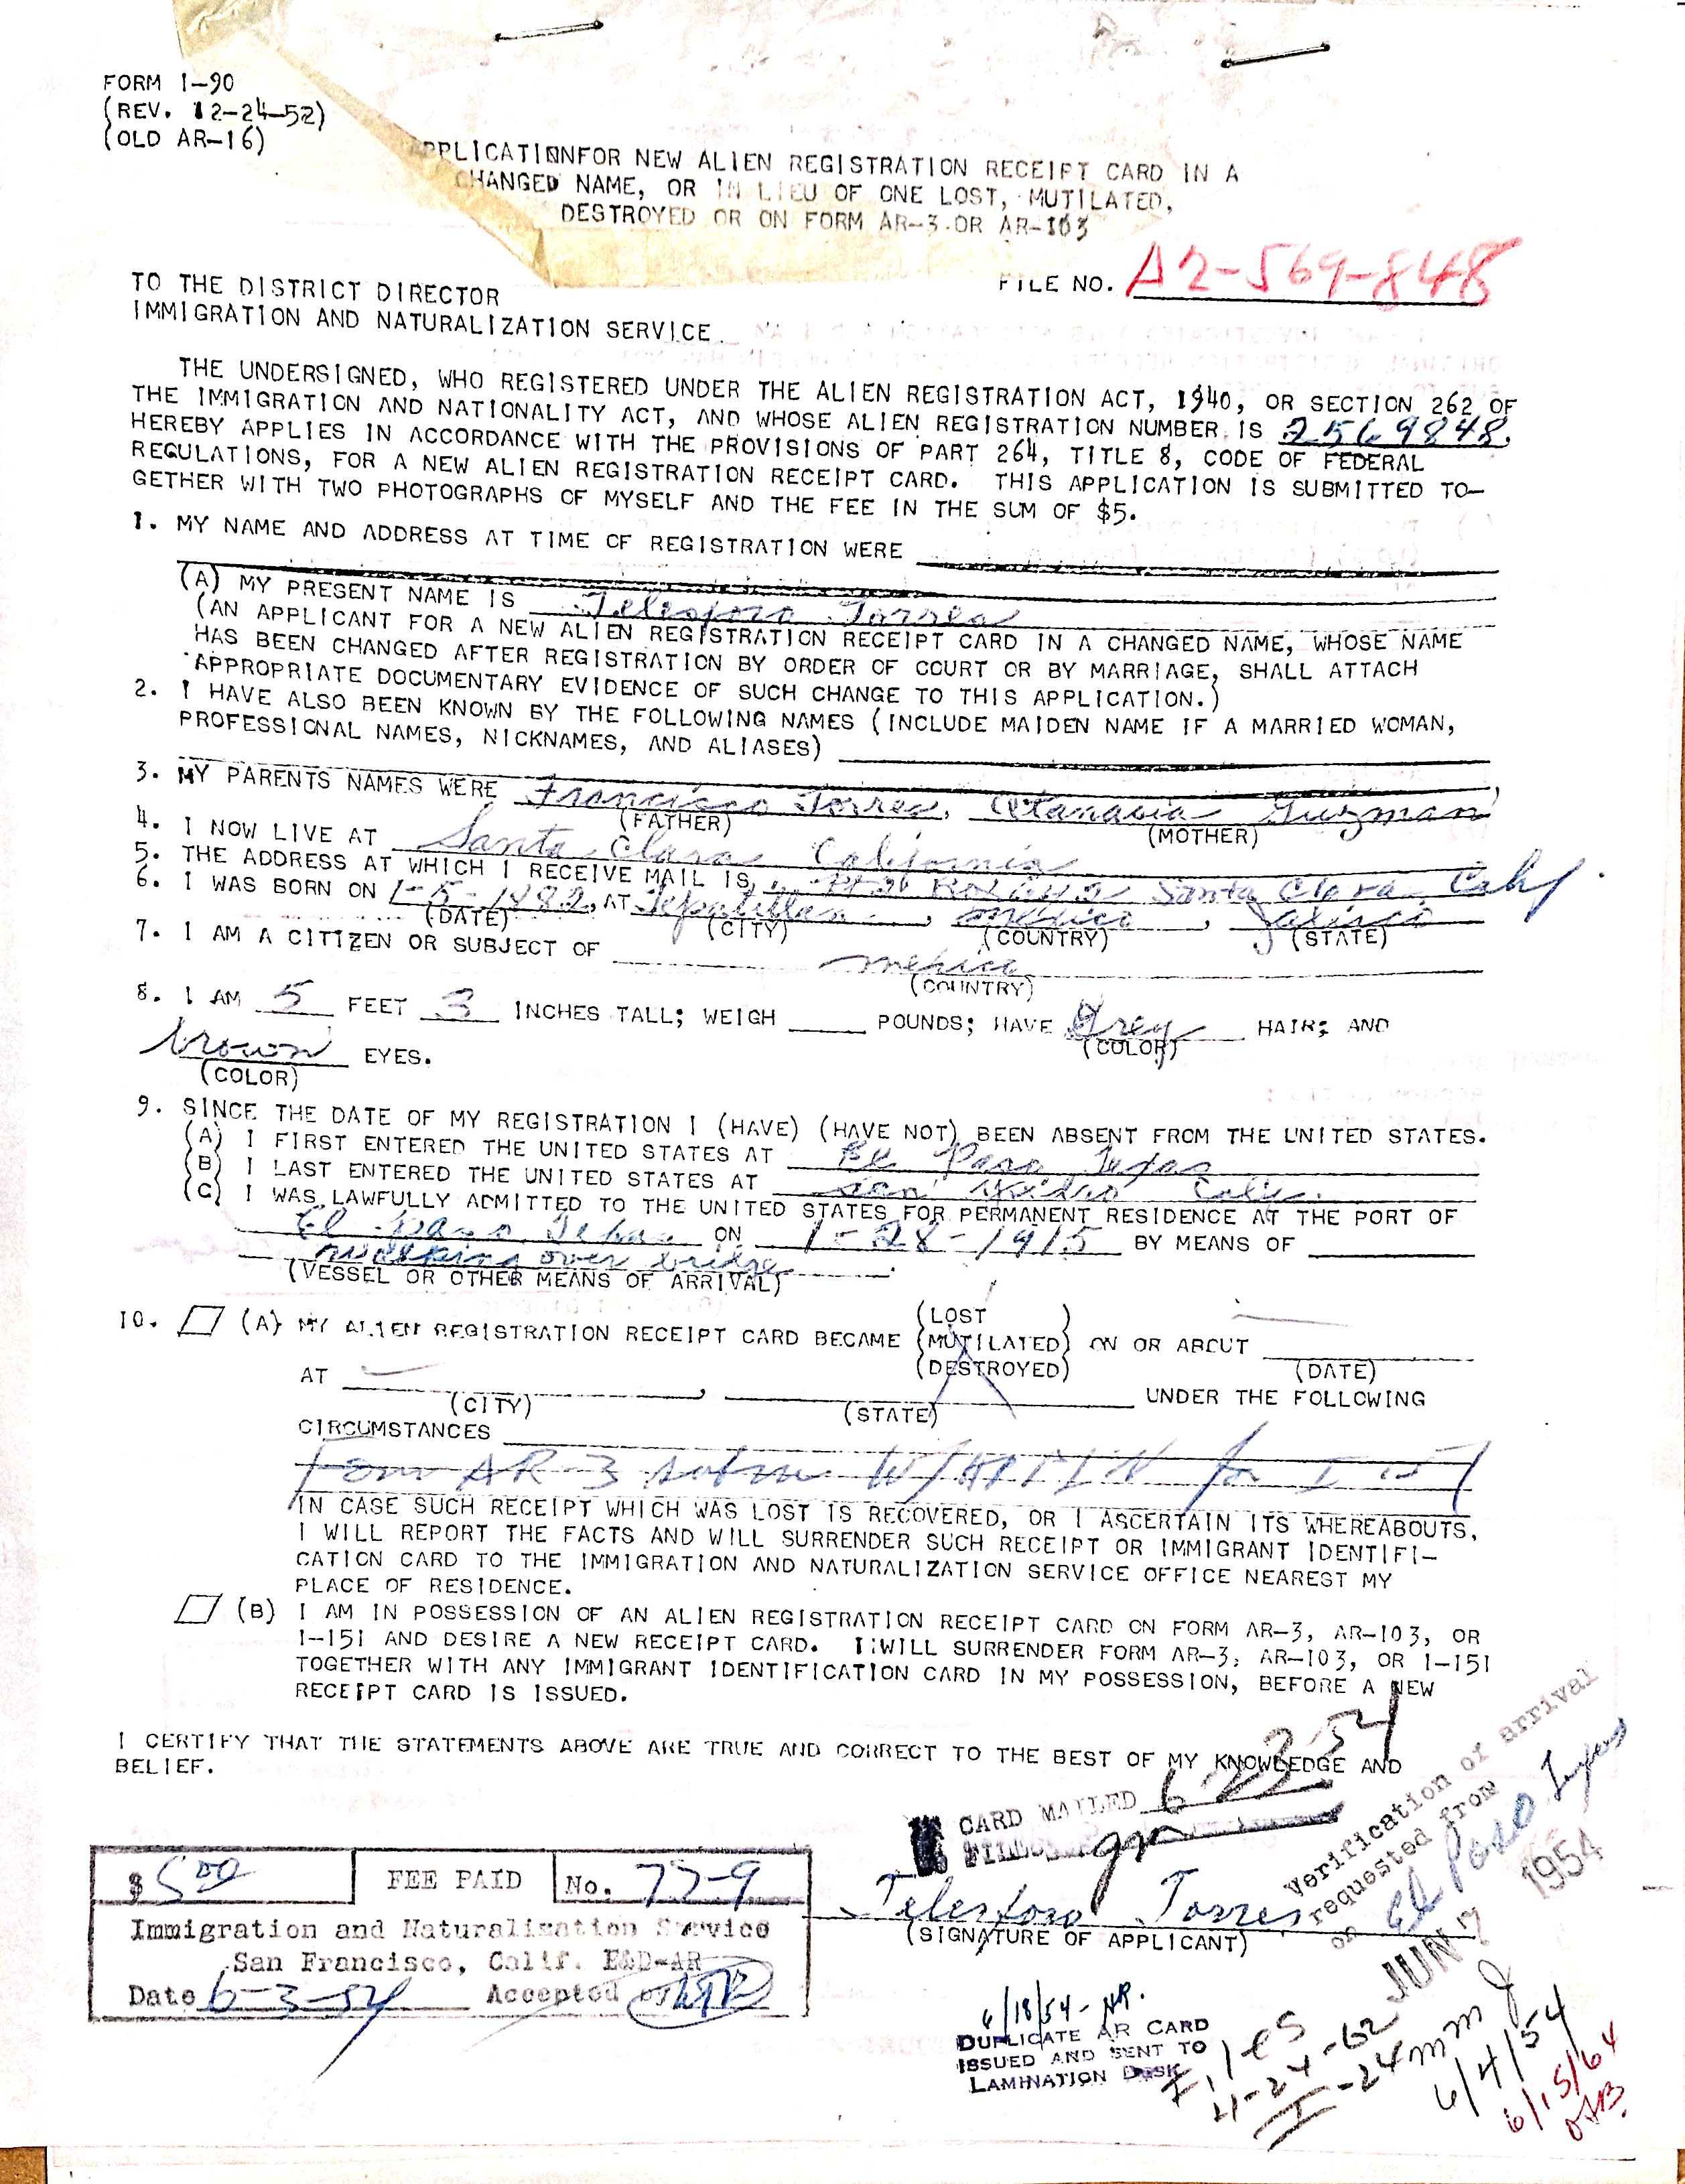 FORM I-90
(REV. 12-24-52)
(OLD AR-16)
APPLICATIONFOR NEW ALIEN REGISTRATION RECEIPT CARD IN A
CHANGED NAME, OR IN LIEU OF ONE LOST, MUTILATED,
DESTROYED OR ON FORM AR-3 OR AR-103
TO THE DISTRICT DIRECTOR
IMMIGRATION AND NATURALIZATION SERVICE
FILE NO. A2-569-848
THE UNDERSIGNED, WHO REGISTERED UNDER THE ALIEN REGISTRATION ACT, 1940, OR SECTION 262 OF
THE IMMIGRATION AND NATIONALITY ACT, AND WHOSE ALIEN REGISTRATION NUMBER IS 2569848,
HEREBY APPLIES IN ACCORDANCE WITH THE PROVISIONS OF PART 264, TITLE 8, CODE OF FEDERAL
REGULATIONS, FOR A NEW ALIEN REGISTRATION RECEIPT CARD. THIS APPLICATION IS SUBMITTED TO-
GETHER WITH TWO PHOTOGRAPHS OF MYSELF AND THE FEE IN THE SUM OF $5.
1. MY NAME AND ADDRESS AT TIME OF REGISTRATION WERE
(A) MY PRESENT NAME IS Telesforo Torres
(AN APPLICANT FOR A NEW ALIEN REGISTRATION RECEIPT CARD IN A CHANGED NAME, WHOSE NAME
HAS BEEN CHANGED AFTER REGISTRATION BY ORDER OF COURT OR BY MARRIAGE, SHALL ATTACH
APPROPRIATE DOCUMENTARY EVIDENCE OF SUCH CHANGE TO THIS APPLICATION.)
2. I HAVE ALSO BEEN KNOWN BY THE FOLLOWING NAMES (INCLUDE MAIDEN NAME IF A MARRIED WOMAN,
PROFESSIONAL NAMES, NICKNAMES, AND ALIASES)
3. MY PARENTS NAMES WERE Francisco Torres, Guzman
(FATHER) (MOTHER)
4. I NOW LIVE AT Santa Clara California
5. THE ADDRESS AT WHICH I RECEIVE MAIL IS Santa Clara Calif.
6. I WAS BORN ON 1-5-1882, AT Tepatitlan, Mexico, Jalisco
(DATE) (CITY) (COUNTRY) (STATE)
7. I AM A CITIZEN OR SUBJECT OF Mexico
(COUNTRY)
8. I AM 5 FEET 3 INCHES TALL; WEIGH POUNDS; HAVE Grey HAIR; AND
(COLOR)
brown EYES.
(COLOR)
9. SINCE THE DATE OF MY REGISTRATION I (HAVE) (HAVE NOT) BEEN ABSENT FROM THE UNITED STATES.
(A) I FIRST ENTERED THE UNITED STATES AT El Paso Texas
(B) I LAST ENTERED THE UNITED STATES AT San Ysidro Calif.
(C) I WAS LAWFULLY ADMITTED TO THE UNITED STATES FOR PERMANENT RESIDENCE AT THE PORT OF
El Paso Texas ON 1-28-1915 BY MEANS OF
walking over bridge
(VESSEL OR OTHER MEANS OF ARRIVAL)
10. (A) MY ALIEN REGISTRATION RECEIPT CARD BECAME (LOST) (MUTILATED) (DESTROYED) ON OR ABOUT
(DATE)
AT UNDER THE FOLLOWING
(CITY) (STATE)
CIRCUMSTANCES
Form AR-3 for I-151
IN CASE SUCH RECEIPT WHICH WAS LOST IS RECOVERED, OR I ASCERTAIN ITS WHEREABOUTS,
I WILL REPORT THE FACTS AND WILL SURRENDER SUCH RECEIPT OR IMMIGRANT IDENTIFI-
CATION CARD TO THE IMMIGRATION AND NATURALIZATION SERVICE OFFICE NEAREST MY
PLACE OF RESIDENCE.
(B) I AM IN POSSESSION OF AN ALIEN REGISTRATION RECEIPT CARD ON FORM AR-3, AR-103, OR
I-151 AND DESIRE A NEW RECEIPT CARD. I WILL SURRENDER FORM AR-3, AR-103, OR I-151
TOGETHER WITH ANY IMMIGRANT IDENTIFICATION CARD IN MY POSSESSION, BEFORE A NEW
RECEIPT CARD IS ISSUED.
I CERTIFY THAT THE STATEMENTS ABOVE ARE TRUE AND CORRECT TO THE BEST OF MY KNOWLEDGE AND
BELIEF.
CARD MAILED 6-22-54
Telesforo Torres
(SIGNATURE OF APPLICANT)
Verification of arrival
requested from
on El Paso Texas
JUN 7 1954
$ 5.00 FEE PAID No. 77-9
Immigration and Naturalization Service
San Francisco, Calif. E&D-AR
Date 6-3-54 Accepted by
6/18/54
DUPLICATE AR CARD
ISSUED AND SENT TO
LAMINATION DESK
Files
4-24-62
6/4/54
6/15/64